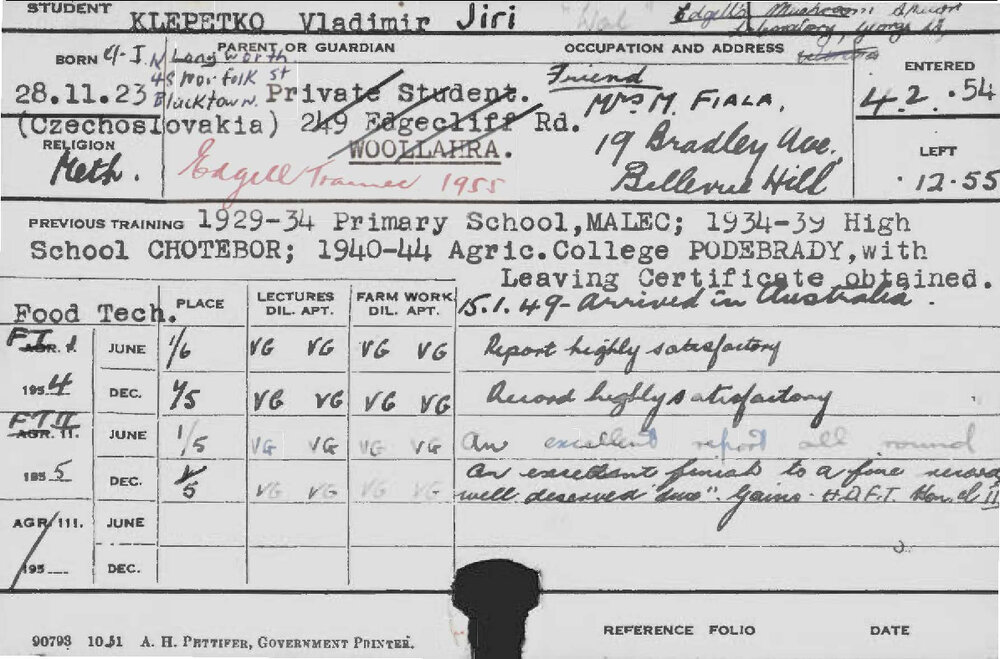 STUDENT KLEPETKO Vladimir Jiri
Edgell's Mushroom Spawn
Laboratory, George St,
BORN PARENT OR GUARDIAN OCCUPATION AND ADDRESS ENTERED
N Langworth
48 Norfolk St
Blacktown.
28.11.23 Private Student. Friend 4.2.54
Mrs M. FIALA,
(Czechoslovakia) 249 Edgecliff Rd. 19 Bradley Ave,
RELIGION WOOLLAHRA. Bellevue Hill LEFT
Meth. Edgell Trainee 1955 12.55
PREVIOUS TRAINING 1929-34 Primary School,MALEC; 1934-39 High
School CHOTEBOR; 1940-44 Agric.College PODEBRADY,with
Leaving Certificate obtained.
Food Tech. PLACE LECTURES DIL. APT. FARM WORK DIL. APT. 15.1.49 - Arrived in Australia.
FT I AGR. I. JUNE 1/6 VG VG VG VG Report highly satisfactory
1954 DEC. 1/5 VG VG VG VG Record highly satisfactory
FT II AGR. II. JUNE 1/5 VG VG VG VG An excellent report all round
1955 DEC. 1/5 VG VG VG VG An excellent finish to a fine record
well deserved "dux". Gains H.D.F.T. Hon. cl II
AGR/III. JUNE
195__ DEC.
90793 10.51 A. H. PETTIFER, GOVERNMENT PRINTER.
REFERENCE FOLIO DATE